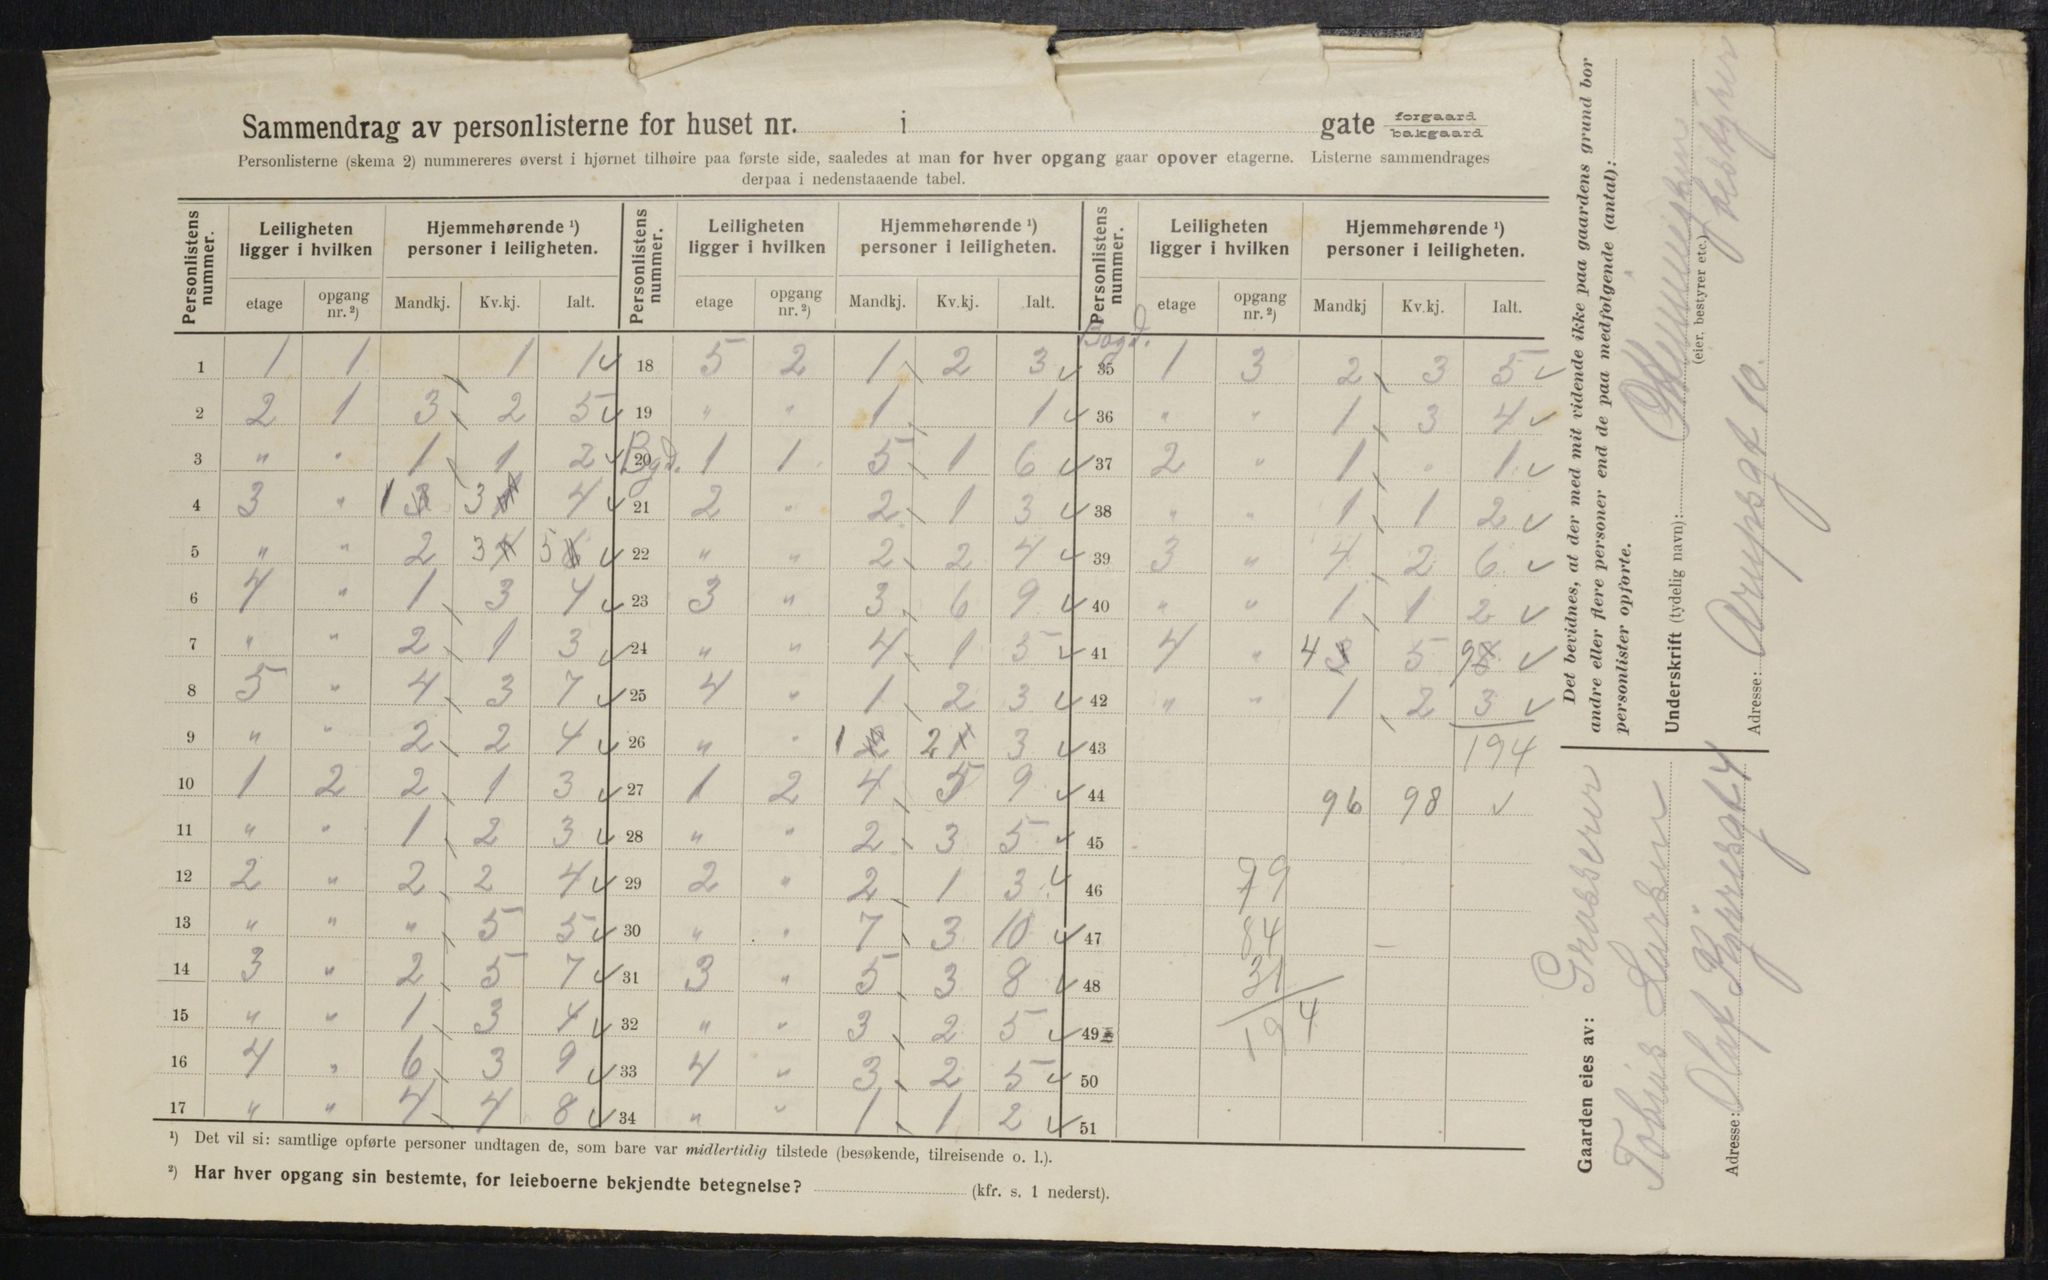 Sammendrag av personlisterne for huset nr. i gate forgaard bakgaard
Personlisterne (skema 2) nummereres øverst i hjørnet tilhøire paa første side, saaledes at man for hver opgang gaar opover etagerne. Listerne sammendrages
derpaa i nedenstaaende tabel.
Personlistens nummer. Leiligheten ligger i hvilken Hjemmehørende ¹) personer i leiligheten. Personlistens nummer. Leiligheten ligger i hvilken Hjemmehørende ¹) personer i leiligheten. Personlistens nummer. Leiligheten ligger i hvilken Hjemmehørende ¹) personer i leiligheten.
etage opgang nr. ²) Mandkj. Kv.kj. Ialt. etage opgang nr. ²) Mandkj. Kv.kj. Ialt. etage opgang nr. ²) Mandkj Kv.kj. Ialt.
1 1 1 1 1 ✓ 18 5 2 1 2 3 ✓ Bagd. 35 1 3 2 3 5 ✓
2 2 1 3 2 5 ✓ 19 " " 1 1 ✓ 36 " " 1 3 4 ✓
3 " " 1 1 2 ✓ Bgd. 20 1 1 5 1 6 ✓ 37 2 " 1 " 1 ✓
4 3 " 1 3 3 1 4 ✓ 21 2 " 2 1 3 ✓ 38 " " 1 1 2 ✓
5 " " 2 3 4 5 6 ✓ 22 " " 2 2 4 ✓ 39 3 " 4 2 6 ✓
6 4 " 1 3 4 ✓ 23 3 " 3 6 9 ✓ 40 " " 1 1 2 ✓
7 " " 2 1 3 ✓ 24 " " 4 1 5 ✓ 41 4 " 4 3 5 9 8 ✓
8 5 " 4 3 7 ✓ 25 4 " 1 2 3 ✓ 42 " " 1 2 3 ✓
9 " " 2 2 4 ✓ 26 " " 1 2 2 1 3 ✓ 43 194
10 1 2 2 1 3 ✓ 27 1 2 4 5 9 ✓ 44 96 98 ✓
11 " " 1 2 3 ✓ 28 " " 2 3 5 ✓ 45
12 2 " 2 2 4 ✓ 29 2 " 2 1 3 ✓ 46 79
13 " " " 5 5 ✓ 30 " " 7 3 10 ✓ 47 84
14 3 " 2 5 7 ✓ 31 3 " 5 3 8 ✓ 48 31
15 " " 1 3 4 ✓ 32 " " 3 2 5 ✓ 49 194
16 4 " 6 3 9 ✓ 33 4 " 3 2 5 ✓ 50
17 " " 4 4 8 ✓ 34 " " 1 1 2 ✓ 51
¹) Det vil si: samtlige opførte personer undtagen de, som bare var midlertidig tilstede (besøkende, tilreisende o. l.).
²) Har hver opgang sin bestemte, for leieboerne bekjendte betegnelse? (kfr. s. 1 nederst).
Det bevidnes, at der med mit vidende ikke paa gaardens grund bor
andre eller flere personer end de paa medfølgende (antal):
personlister opførte.
Underskrift (tydelig navn):
(eier, bestyrer etc.) bestyrer
Adresse: Arupsgt 10.
Gaarden eies av: Grosserer
Tobias Larsen
Adresse: Olaf Kyrresgt 4